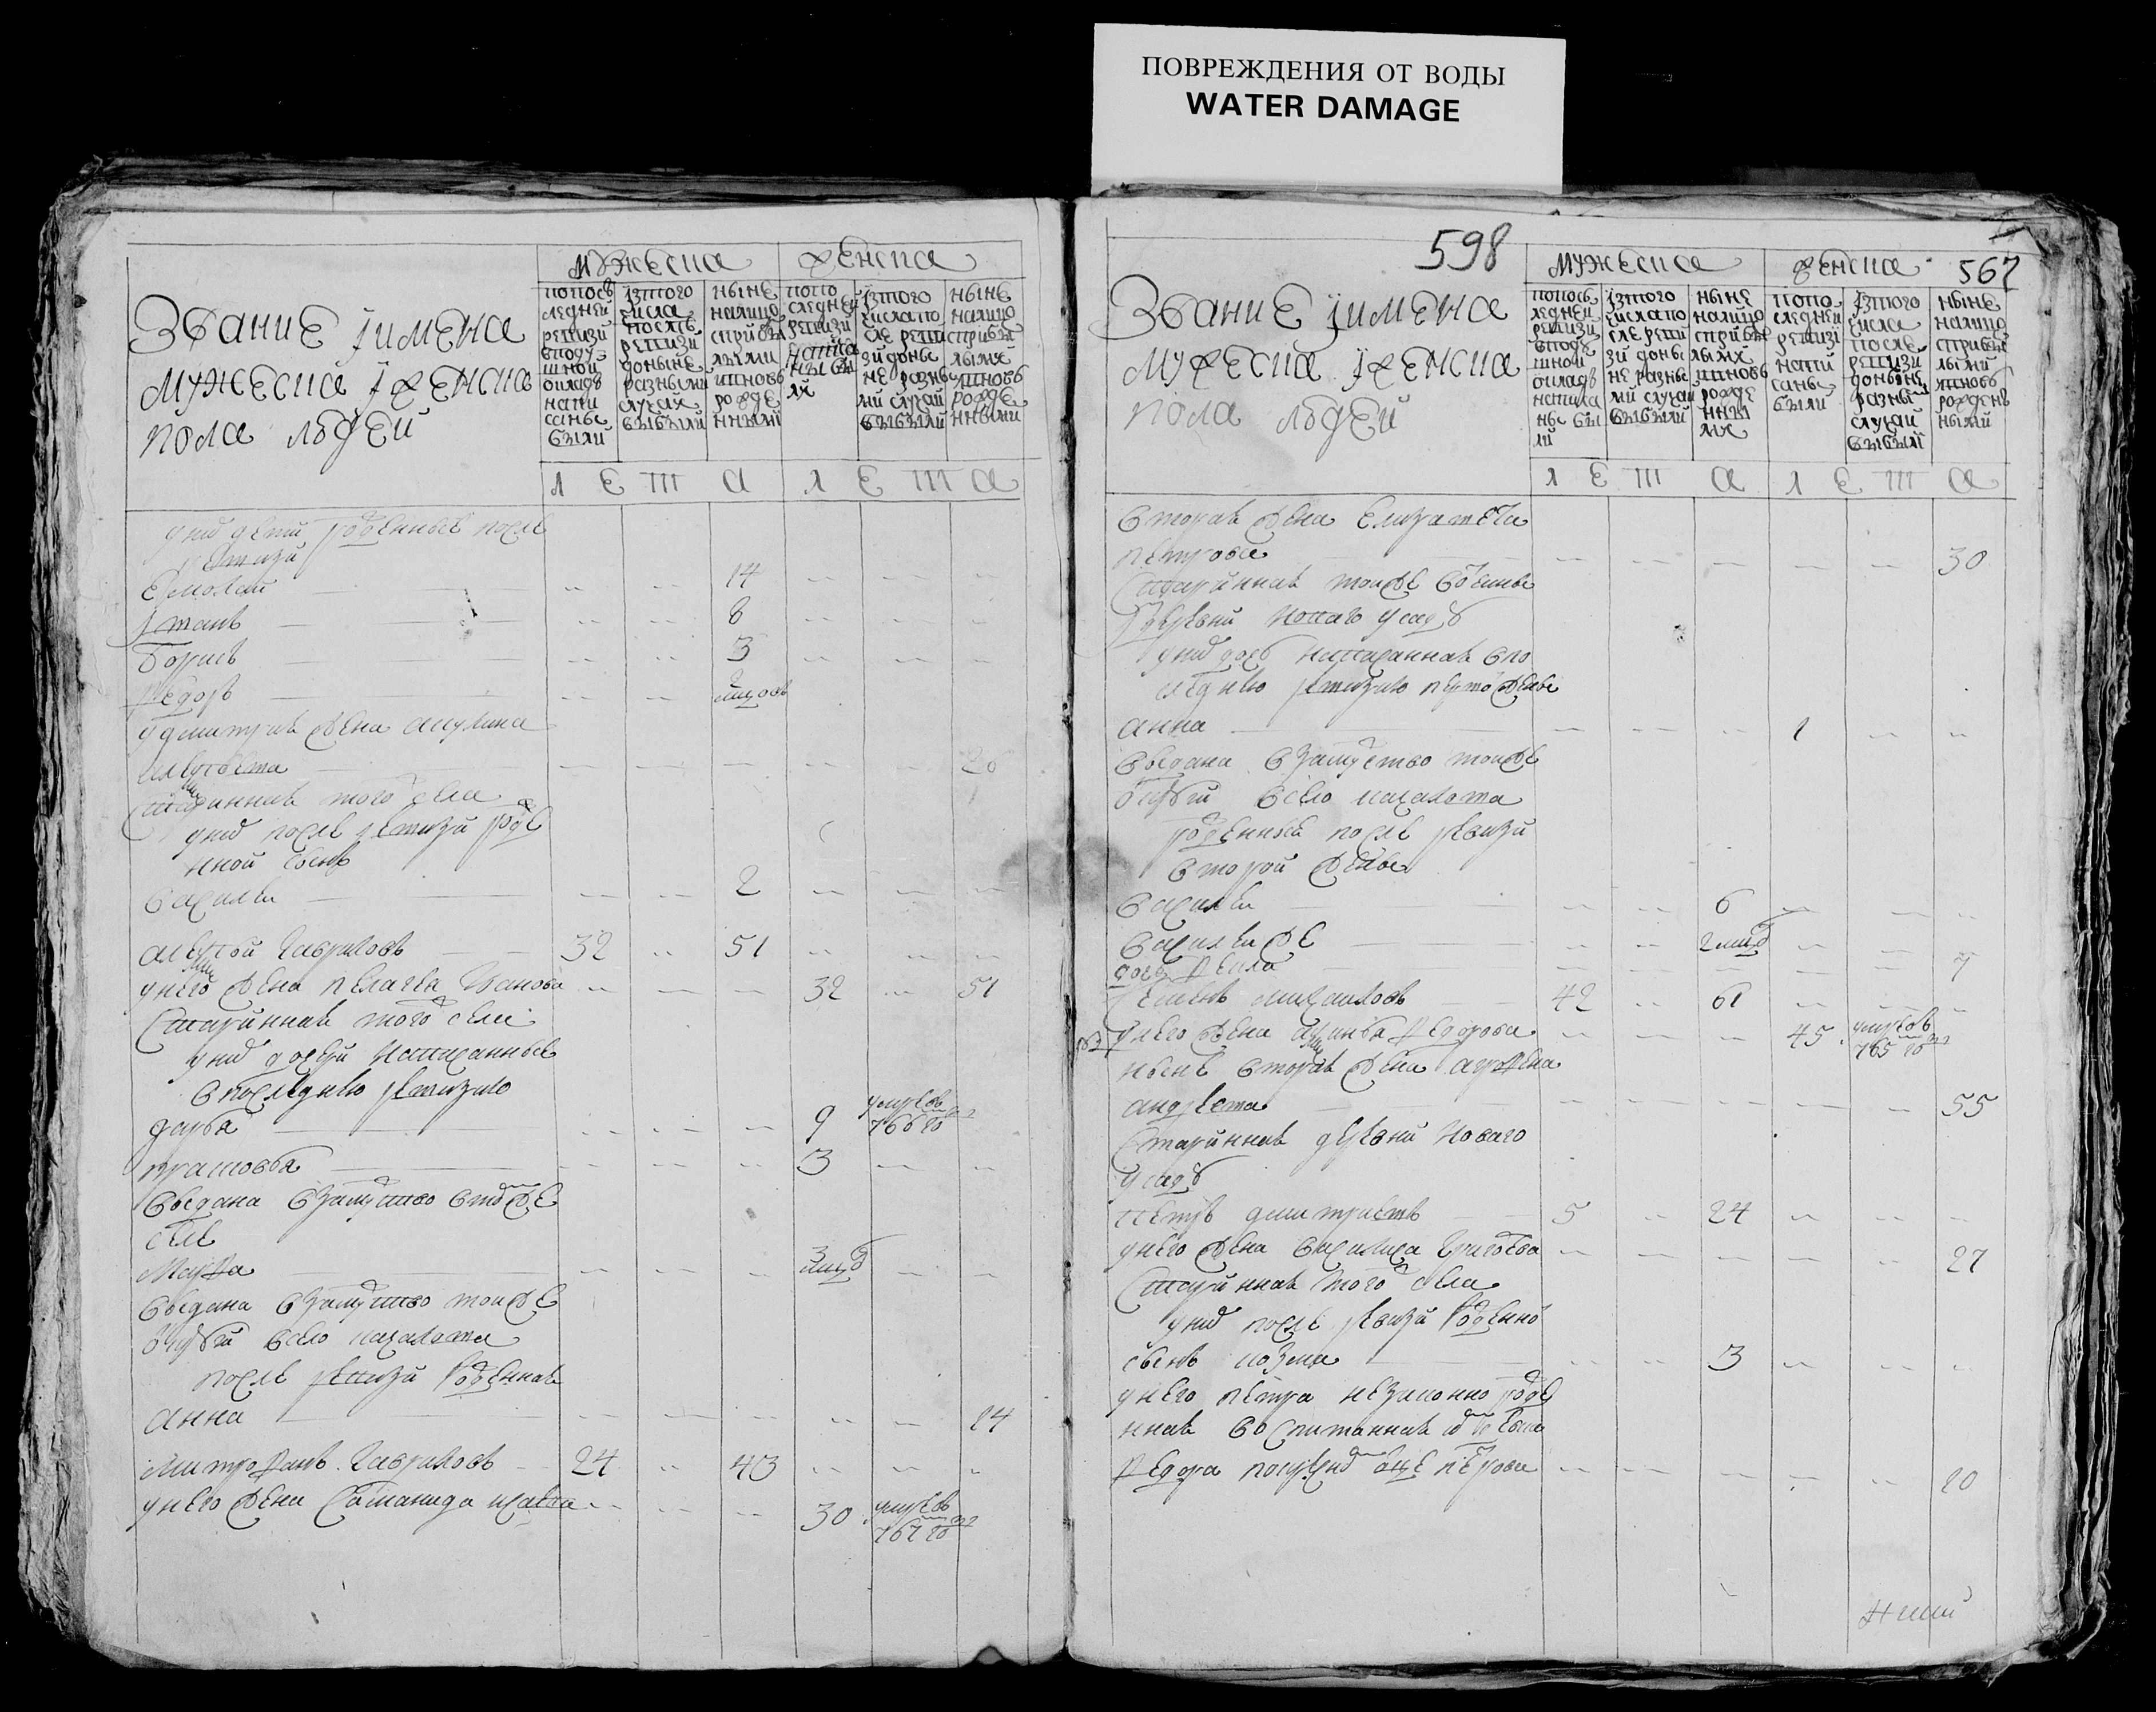 ПОВРЕЖДЕНИЯ ОТ ВОДЫ
WATER DAMAGE
мужеска женска
Звание и имена
мужеска и женска
пола людей
попослѣдней ревизи вподушной окладъ написаны были
изтого числа послѣ ревизи доныне разными случаи выбыли
ныне налицо сприбылыми и вновь рожденными
попоследней ревизи написаны были
изтого числа после ревизи доныне разными случаи выбыли
ныне налицо сприбылыми и вновь рожденными
л е т а л е т а
у них дети рожденные после
ревизи
Ермолай 14
Иванъ 8
Борисъ 3
Федоръ 2 мцовъ
у дмитрия жена акулина
26
старинная того села
у них после ревизи рожде
нной сынъ
василеи 2
алексей Гавриловъ 32 51
у него жена пелагея Иванова 32 51
Старинная того села
у них дочери написанные
в последнюю ревизию
дарья 9 умре въ 766 году
прасковья 3
выдана взамужство втомже
селе
Марфа 3 мцъ
выдана взамужство тойже
округи всело
после ревизи рожденная
анна 14
митрофанъ Гавриловъ 24 43
у него жена Соломанида 30 умре въ 767 году
598
567
мужеска женска
Звание и имена
мужеска и женска
пола людей
попослѣдней ревизи вподушной окладъ написаны были
изтого числа после ревизи доны не разными случаи выбыли
ныне налицо сприбылыми и вновь рожденными
попоследней ревизи написаны были
изтого числа после ревизи доныне разными случаи выбыли
ныне налицо сприбылыми и вновь рожденными
л е т а л е т а
вторая жена Елизавета
петрова 30
Старинная тойже вотчины
деревни Новаго усаду
у них дочь написанная впо
следнюю ревизию первой жены
анна 1
выдана взамужство тойже
округи всело
рожденные после ревизи
второй жены
василеи 6
василеи же 2 мцъ
дочь Фекла 7
Семенъ михаиловъ 42 61
у него жена Федорова 45 умре въ 765 году
ныне вторая жена аграфена
андреева 55
Старинная деревни Новаго
усаду
Петръ дмитриевъ 5 24
у него жена василиса Григорьева 27
Старинная того села
у них после ревизи рожденно
сынъ козма 3
у него петра незаконно рожде
нная воспитанная
Федора 10